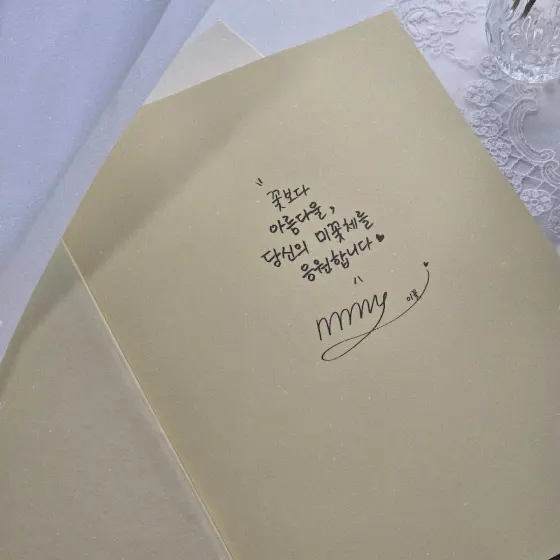 "꽃보다
아름다울,
당신의 미꽃체를
응원합니다♥
"
mmmy
미꽃